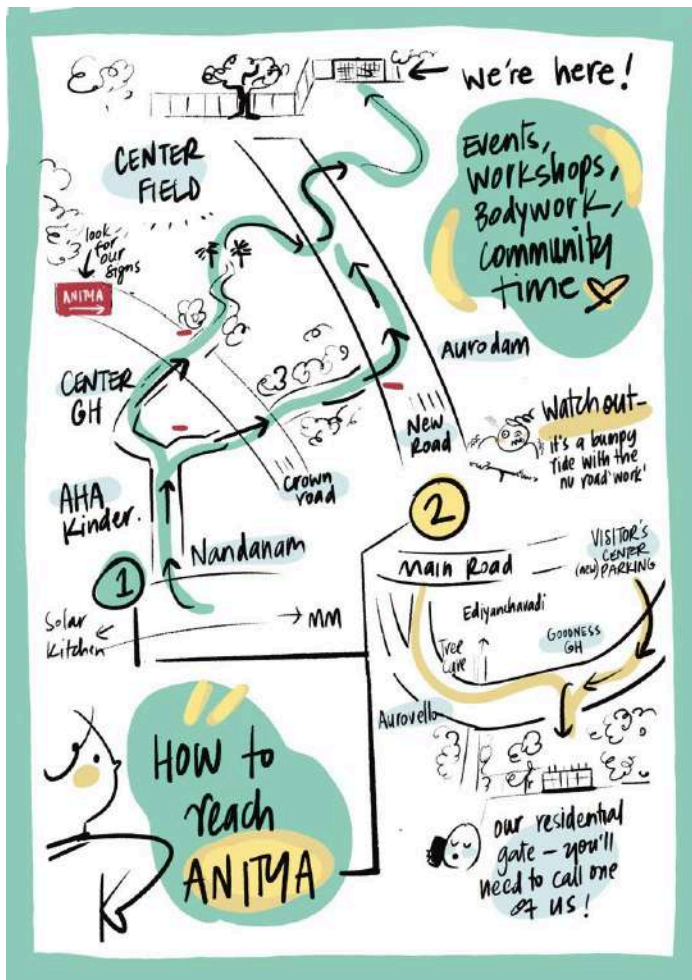 we're here!
Events,
workshops,
Bodywork,
community
time
CENTER
FIELD
look
for
our
signs
ANITYA
CENTER
GH
Aurodam
New
Road
Watch out-
it's a bumpy
ride with the
nu road 'work'
Crown
road
AHA
Kinder.
Nandanam
1
Solar
Kitchen
MM
2
Main Road
VISITOR'S
CENTER
(new) PARKING
Ediyanchavadi
GOODNESS
GH
Tree
Care
Aurovello
HOW to
reach
ANITYA
our residential
gate – you'll
need to call one
of us!